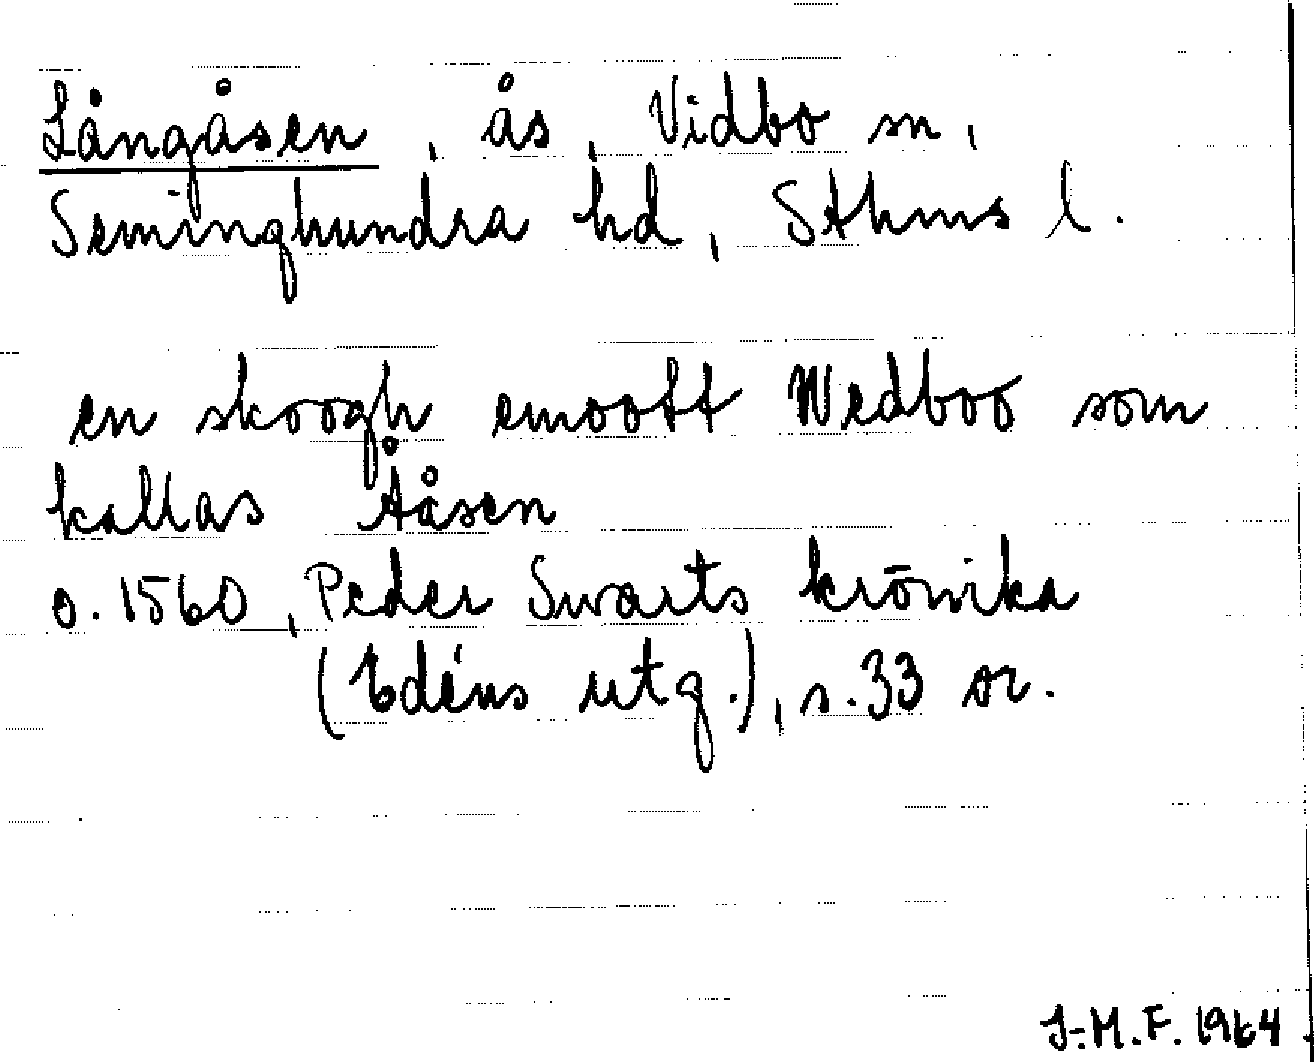 Långåsen, ås, Vidbo sn,
Seminghundra hd, Sthms l.
en skoogh emoott Wedboo som
kallas Ååsen
o. 1560, Peder Swarts krönika
(Edéns utg.), s. 33 sr.
J-M.F. 1964